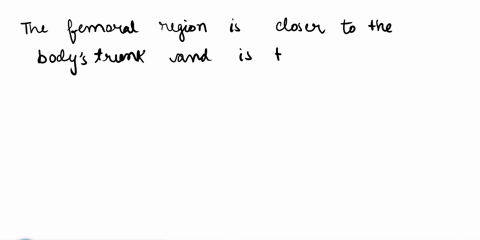 The femoral region is closer to the
body's trunk and is t